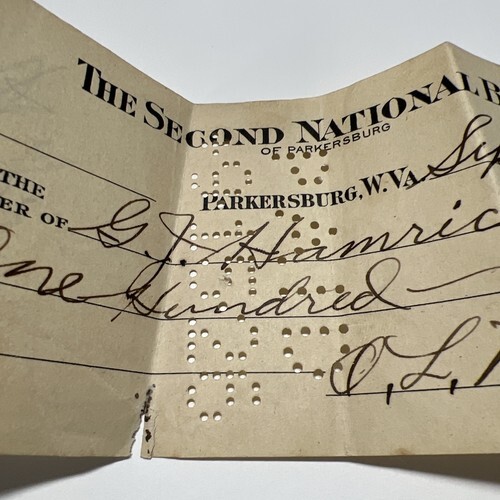 THE SECOND NATIONAL B
OF PARKERSBURG
PARKERSBURG, W. VA. Sep
THE
ER OF G. J. Hamric
One Hundred
O. L.